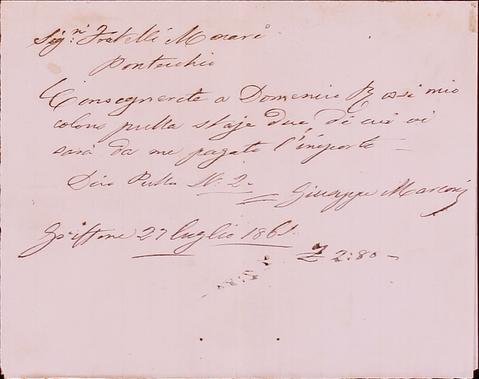 Sigri Fratelli Monari
Pontecchio
Consegnerete a Domenico Rossi mio
colono pulla staje due, di cui vi
sarà da me pagato l'importo -
Dico Pulla N. 2. Giuseppe Marconi
Griffone 27 luglio 1861.
£ 2:80 -